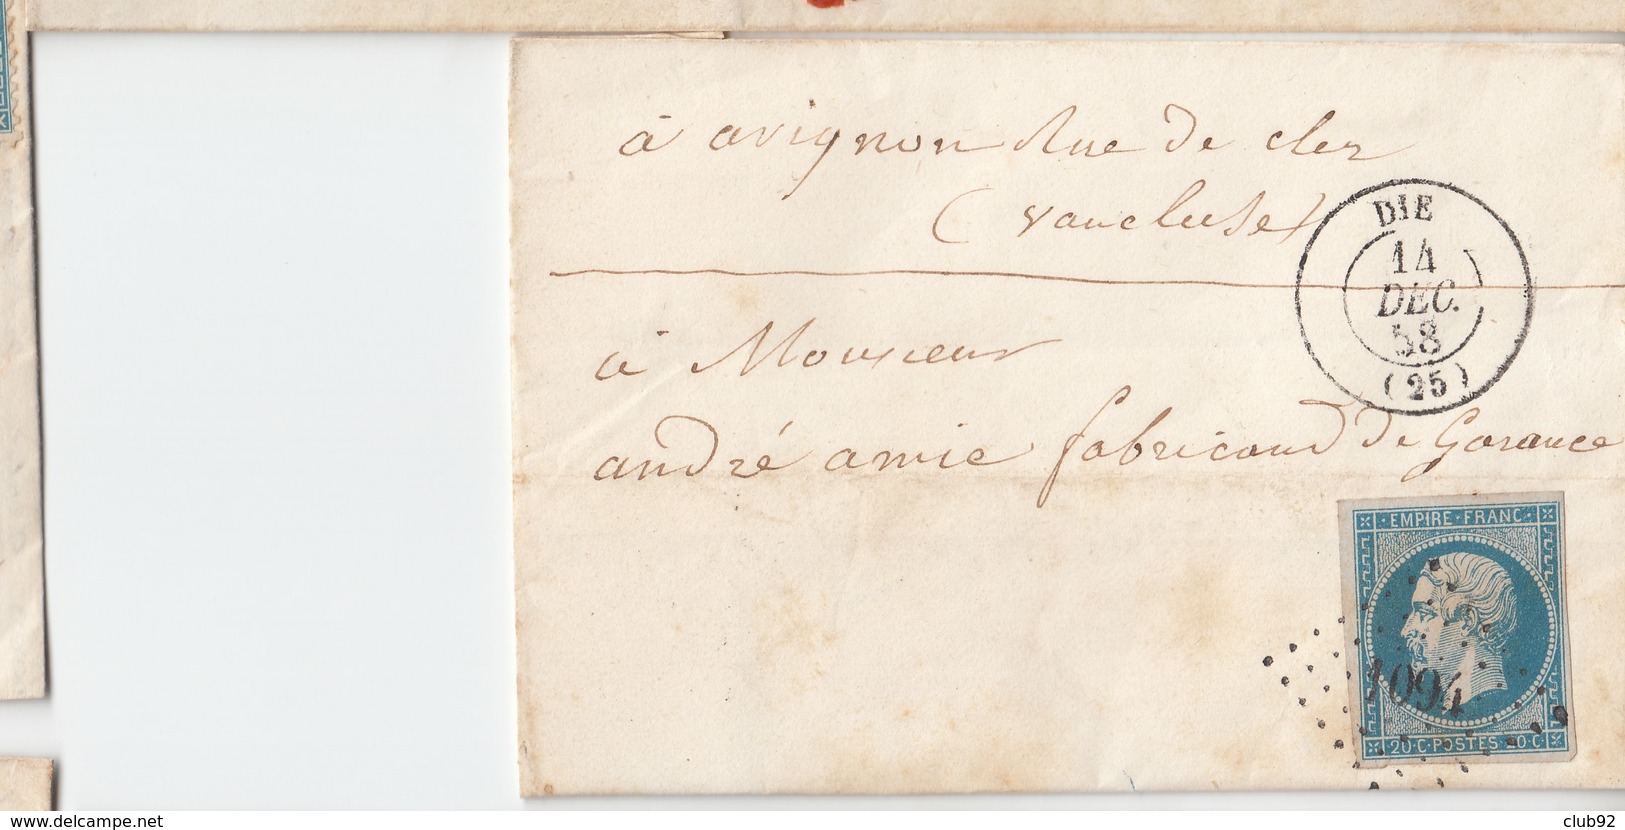 à avignon Rue de cler
(vaucluse)
DIE
14
DEC.
58
(25)
à Monsieur
andré amic fabricand de Garance
EMPIRE FRANC
1094
20·C·POSTES·20·C·
www.delcampe.net
club92